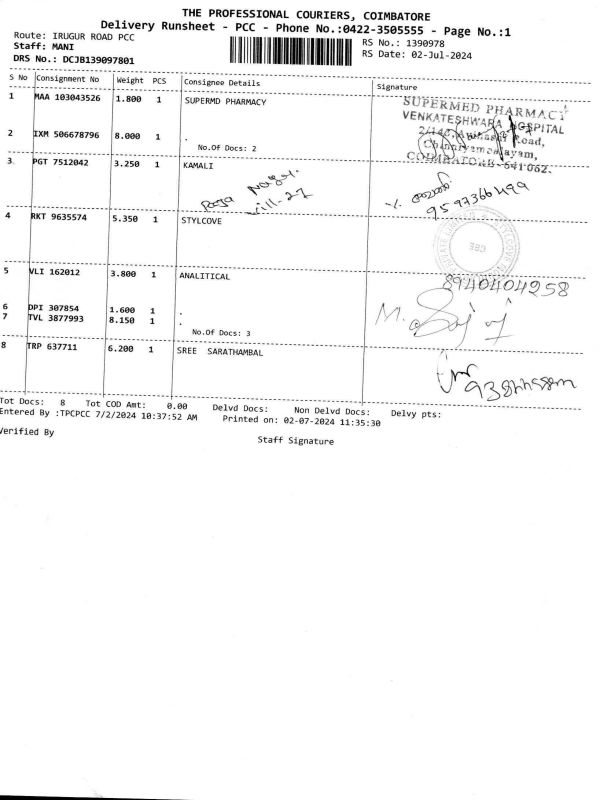 THE PROFESSIONAL COURIERS, COIMBATORE
Delivery Runsheet - PCC - Phone No.:0422-3505555 - Page No.:1
Route: IRUGUR ROAD PCC
Staff: MANI
DRS No.: DCJB139097801
RS No.: 1390978
RS Date: 02-Jul-2024
S No Consignment No Weight PCS Consignee Details Signature
1 MAA 103043526 1.800 1 SUPERMD PHARMACY
SUPERMED PHARMACY
VENKATESHWARA HOSPITAL
2 IXM 506678796 8.000 1 .
No.Of Docs: 2
COIMBATORE - 641 062.
3 PGT 7512042 3.250 1 KAMALI
9597366499
4 RKT 9635574 5.350 1 STYLCOVE
CBE
5 VLI 162012 3.800 1 ANALITICAL
8940404258
6 DPI 307854 1.600 1 .
7 TVL 3877993 8.150 1 .
No.Of Docs: 3
8 TRP 637711 6.200 1 SREE SARATHAMBAL
Tot Docs: 8 Tot COD Amt: 0.00 Delvd Docs: Non Delvd Docs: Delvy pts:
Entered By :TPCPCC 7/2/2024 10:37:52 AM Printed on: 02-07-2024 11:35:30
Verified By
Staff Signature